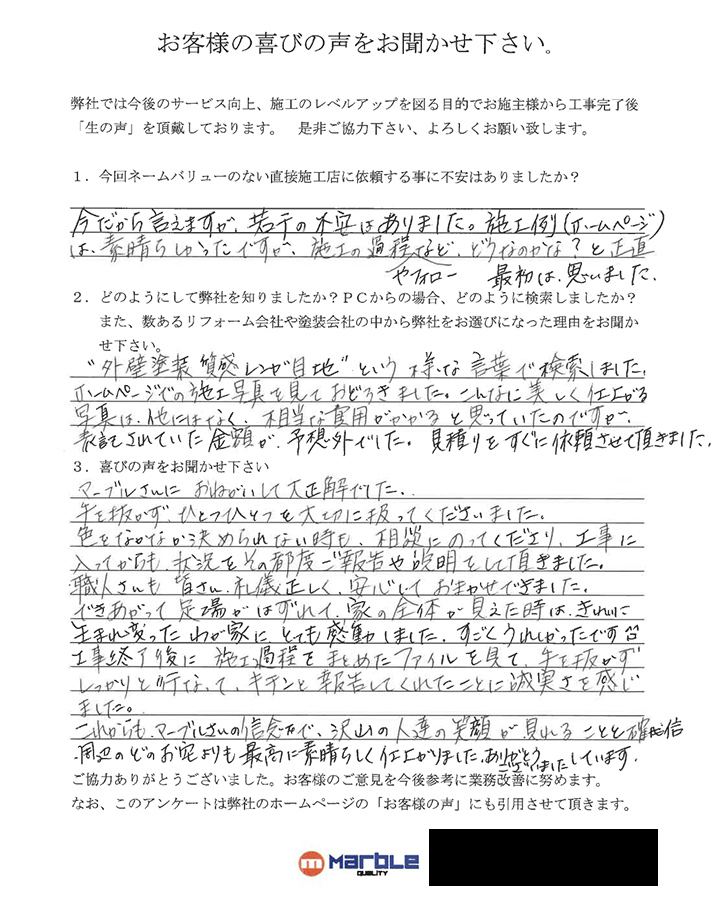 お客様の喜びの声をお聞かせ下さい。
弊社では今後のサービス向上、施工のレベルアップを図る目的でお施主様から工事完了後
「生の声」を頂戴しております。 是非ご協力下さい、よろしくお願い致します。
1．今回ネームバリューのない直接施工店に依頼する事に不安はありましたか？
今だから言えますが、若干の不安はありました。施工例(ホームページ)
は、素晴らしかったですが、施工の過程など、どうなのかな？と正直
やフォロー 最初は、思いました。
2．どのようにして弊社を知りましたか？PCからの場合、どのように検索しましたか？
また、数あるリフォーム会社や塗装会社の中から弊社をお選びになった理由をお聞か
せ下さい。
"外壁塗装 質感 レンガ 目地" という 様々な 言葉で検索しました。
ホームページでの施工写真を見ておどろきました。こんなに美しく仕上がる
写真は、他にはなく、相当な費用がかかると思っていたのですが、
表記されていた金額が、予想外でした。見積りをすぐに依頼させて頂きました。
3．喜びの声をお聞かせ下さい
マーブルさんに おねがいして大正解でした。
手を抜かず、ひとつひとつを大切に扱ってくださいました。
色をなかなか決められない時も、相談にのってくださり、工事に
入ってからも、状況をその都度ご報告や説明をして頂きました。
職人さんも 皆さん 礼儀正しく、安心して おまかせできました。
できあがって 足場がはずれて、家の全体が見えた時は、きれいに
生まれ変った わが家に、とても感動しました。すごくうれしかったです
工事終了後に 施工過程をまとめたファイルを見て、手を抜かず
しっかりと行なって、キチンと報告してくれたことに誠実さを感じ
ました。
これからも、マーブルさんの信念で、沢山の人達の笑顔が見れることを確信
周辺のどのお宅よりも最高に素晴らしく仕上がりました。ありがとう
ございました しています。
ご協力ありがとうございました。お客様のご意見を今後参考に業務改善に努めます。
なお、このアンケートは弊社のホームページの「お客様の声」にも引用させて頂きます。
m MARBLE
QUALITY